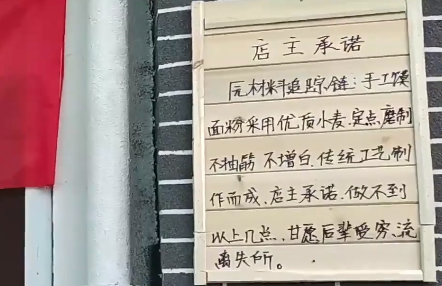 店主承诺
原材料追踪链:手工馍
面粉采用优质小麦、定点磨制
不抽筋 不增白、传统工艺制
作而成、店主承诺、做不到
以上几点、甘愿后辈受穷、流
离失所。